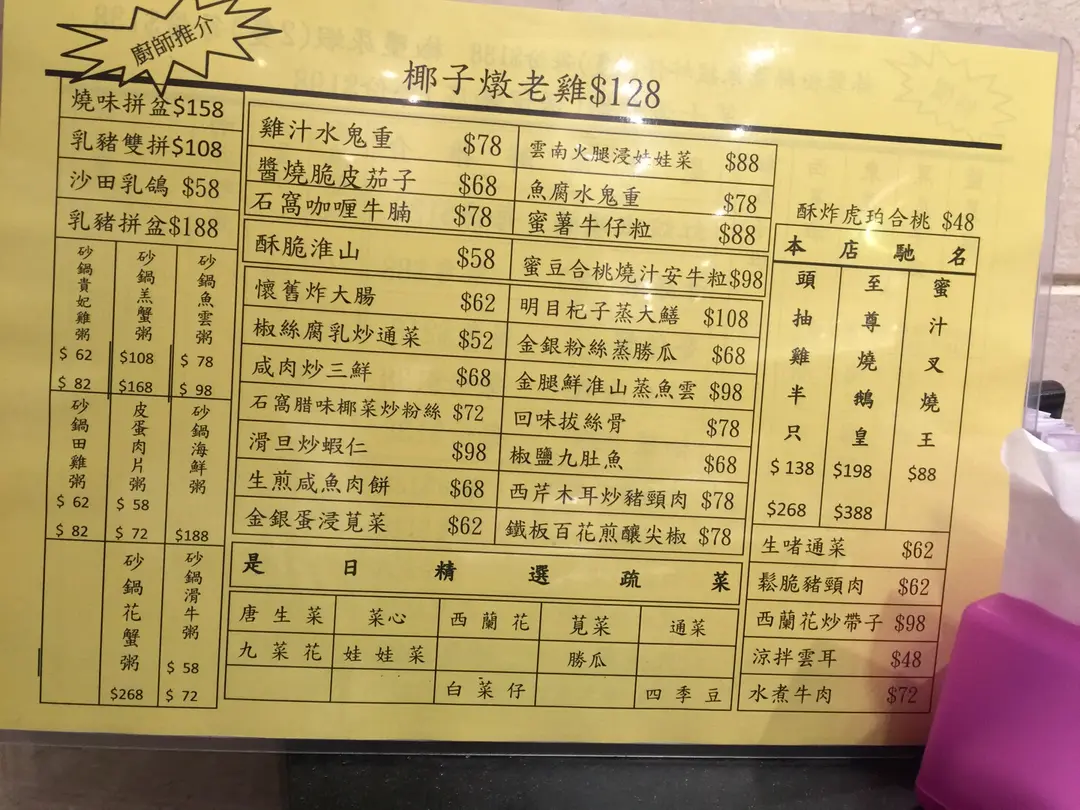 廚師推介
椰子燉老雞$128
燒味拼盆$158
乳豬雙拼$108
沙田乳鴿 $58
乳豬拼盆$188
砂鍋貴妃雞粥 $ 62 $ 82
砂鍋羔蟹粥 $108 $168
砂鍋魚雲粥 $ 78 $ 98
砂鍋田雞粥 $ 62 $ 82
皮蛋肉片粥 $ 58 $ 72
砂鍋海鮮粥 $188
砂鍋花蟹粥 $268
砂鍋滑牛粥 $ 58 $ 72
雞汁水鬼重 $78
醬燒脆皮茄子 $68
石窩咖喱牛腩 $78
酥脆淮山 $58
懷舊炸大腸 $62
椒絲腐乳炒通菜 $52
咸肉炒三鮮 $68
石窩腊味椰菜炒粉絲 $72
滑旦炒蝦仁 $98
生煎咸魚肉餅 $68
金銀蛋浸莧菜 $62
雲南火腿浸娃娃菜 $88
魚腐水鬼重 $78
蜜薯牛仔粒 $88
蜜豆合桃燒汁安牛粒$98
明目杞子蒸大鱔 $108
金銀粉絲蒸勝瓜 $68
金腿鮮准山蒸魚雲 $98
回味拔絲骨 $78
椒鹽九肚魚 $68
西芹木耳炒豬頸肉 $78
鐵板百花煎釀尖椒 $78
是日精選疏菜
唐生菜 菜心 西蘭花 莧菜 通菜
九菜花 娃娃菜 勝瓜
白菜仔 四季豆
酥炸虎珀合桃 $48
本店馳名
頭抽雞半只 $138 $268
至尊燒鵝皇 $198 $388
蜜汁叉燒王 $88
生啫通菜 $62
鬆脆豬頸肉 $62
西蘭花炒帶子 $98
涼拌雲耳 $48
水煮牛肉 $72